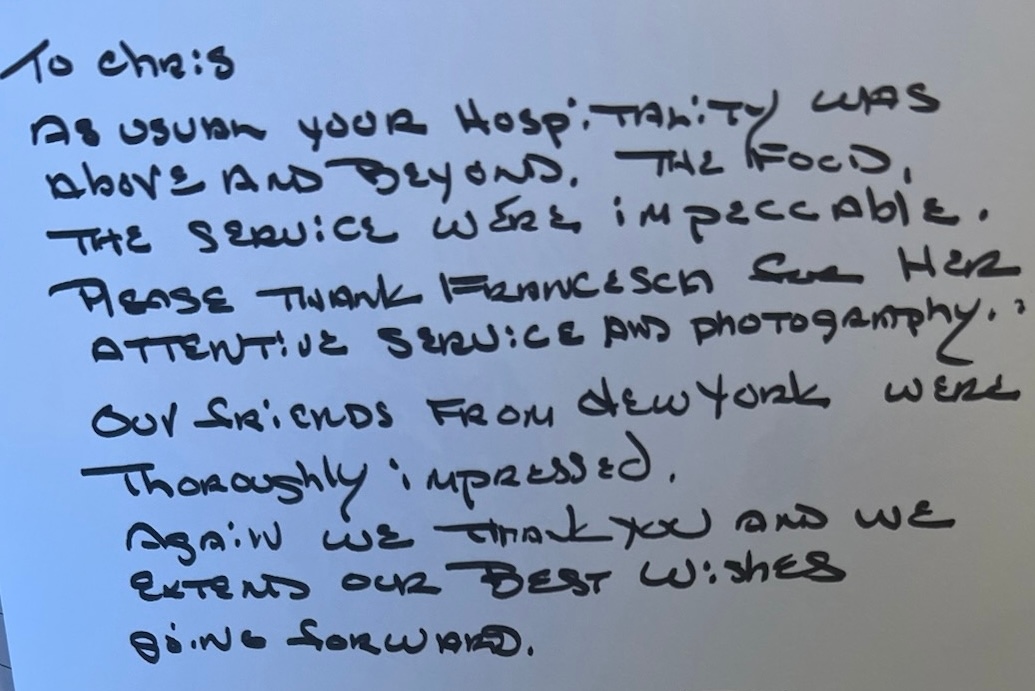 To Chris
As usual your Hospitality was
above and Beyond. The Food,
The service were impeccable.
Please thank Francesca for Her
attentive service and photography.
Our friends from New York were
Thoroughly impressed.
Again we thank you and we
extend our Best wishes
going forward.